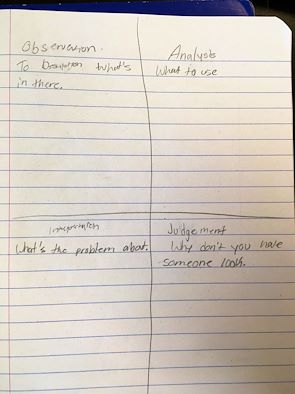 Observation.
To what's
in there.
Analysis
What to use
What's the problem about.
Judgement
Why don't you have
someone look.